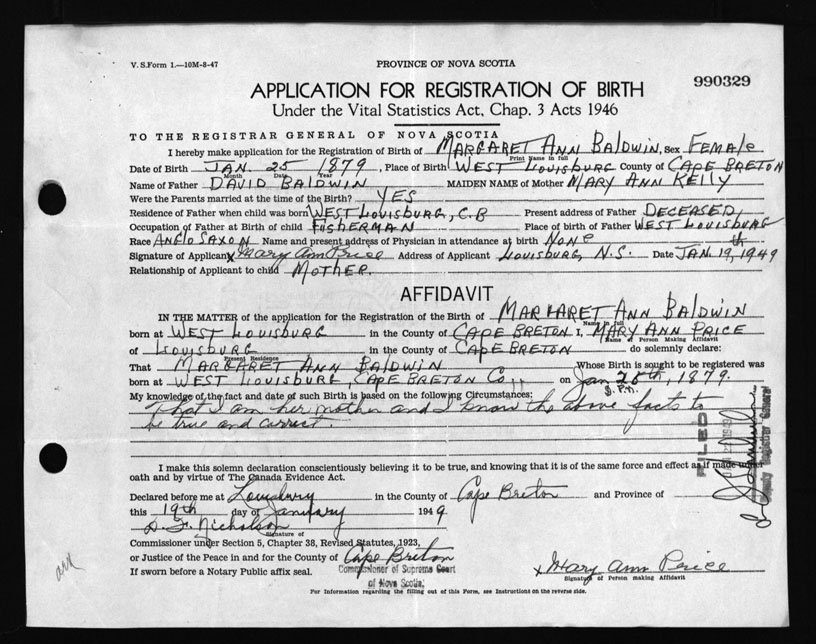 V. S. Form 1.—10M-8-47
PROVINCE OF NOVA SCOTIA
990329
APPLICATION FOR REGISTRATION OF BIRTH
Under the Vital Statistics Act, Chap. 3 Acts 1946
TO THE REGISTRAR GENERAL OF NOVA SCOTIA
I hereby make application for the Registration of Birth of MARGARET ANN BALDWIN, sex FEMAlE
Print Name in full
Date of Birth JAN. 25 1879, Place of Birth WEST LOUISBURG County of CAPE BRETON
Month Date Year
Name of Father DAVID BALDWIN MAIDEN NAME of Mother MARY ANN KELLY
Were the Parents married at the time of the Birth? YES
Residence of Father when child was born WEST LOUISBURG, C.B Present address of Father DECEASED,
Occupation of Father at Birth of child FISHERMAN Place of birth of Father WEST LOUISBURG
Race ANGLO SAXON Name and present address of Physician in attendance at birth NONE
Signature of Applicant x Mary Ann Price Address of Applicant LOUISBURG, N.S. Date JAN. 19th, 1949
Relationship of Applicant to child MOTHER.
AFFIDAVIT
IN THE MATTER of the application for the Registration of the Birth of MARGARET ANN BALDWIN
Name in full
born at WEST LOUISBURG in the County of CAPE BRETON I, MARY ANN PRICE
Name of Person Making Affidavit
of LOUISBURG in the County of CAPE BRETON do solemnly declare:
Present Residence
That MARGARET ANN BALDWIN Whose Birth is sought to be registered was
born at WEST LOUISBURG, CAPE BRETON Co., on Jan 25th, 1879.
My knowledge of the fact and date of such Birth is based on the following Circumstances:
That I am her mother and I know the above facts to
be true and correct.
FILED
Deputy Registrar General
I make this solemn declaration conscientiously believing it to be true, and knowing that it is of the same force and effect as if made under
oath and by virtue of The Canada Evidence Act.
Declared before me at Louisburg in the County of Cape Breton and Province of
this 19th day of January 1949
D. F. Nicholson
Signature of
Commissioner under Section 5, Chapter 38, Revised Statutes, 1923,
or Justice of the Peace in and for the County of Cape Breton
If sworn before a Notary Public affix seal.
Commissioner of Supreme Court
of Nova Scotia.
x Mary Ann Price
Signature of Person making Affidavit
For Information regarding the filling out of this Form, see Instructions on the reverse side.